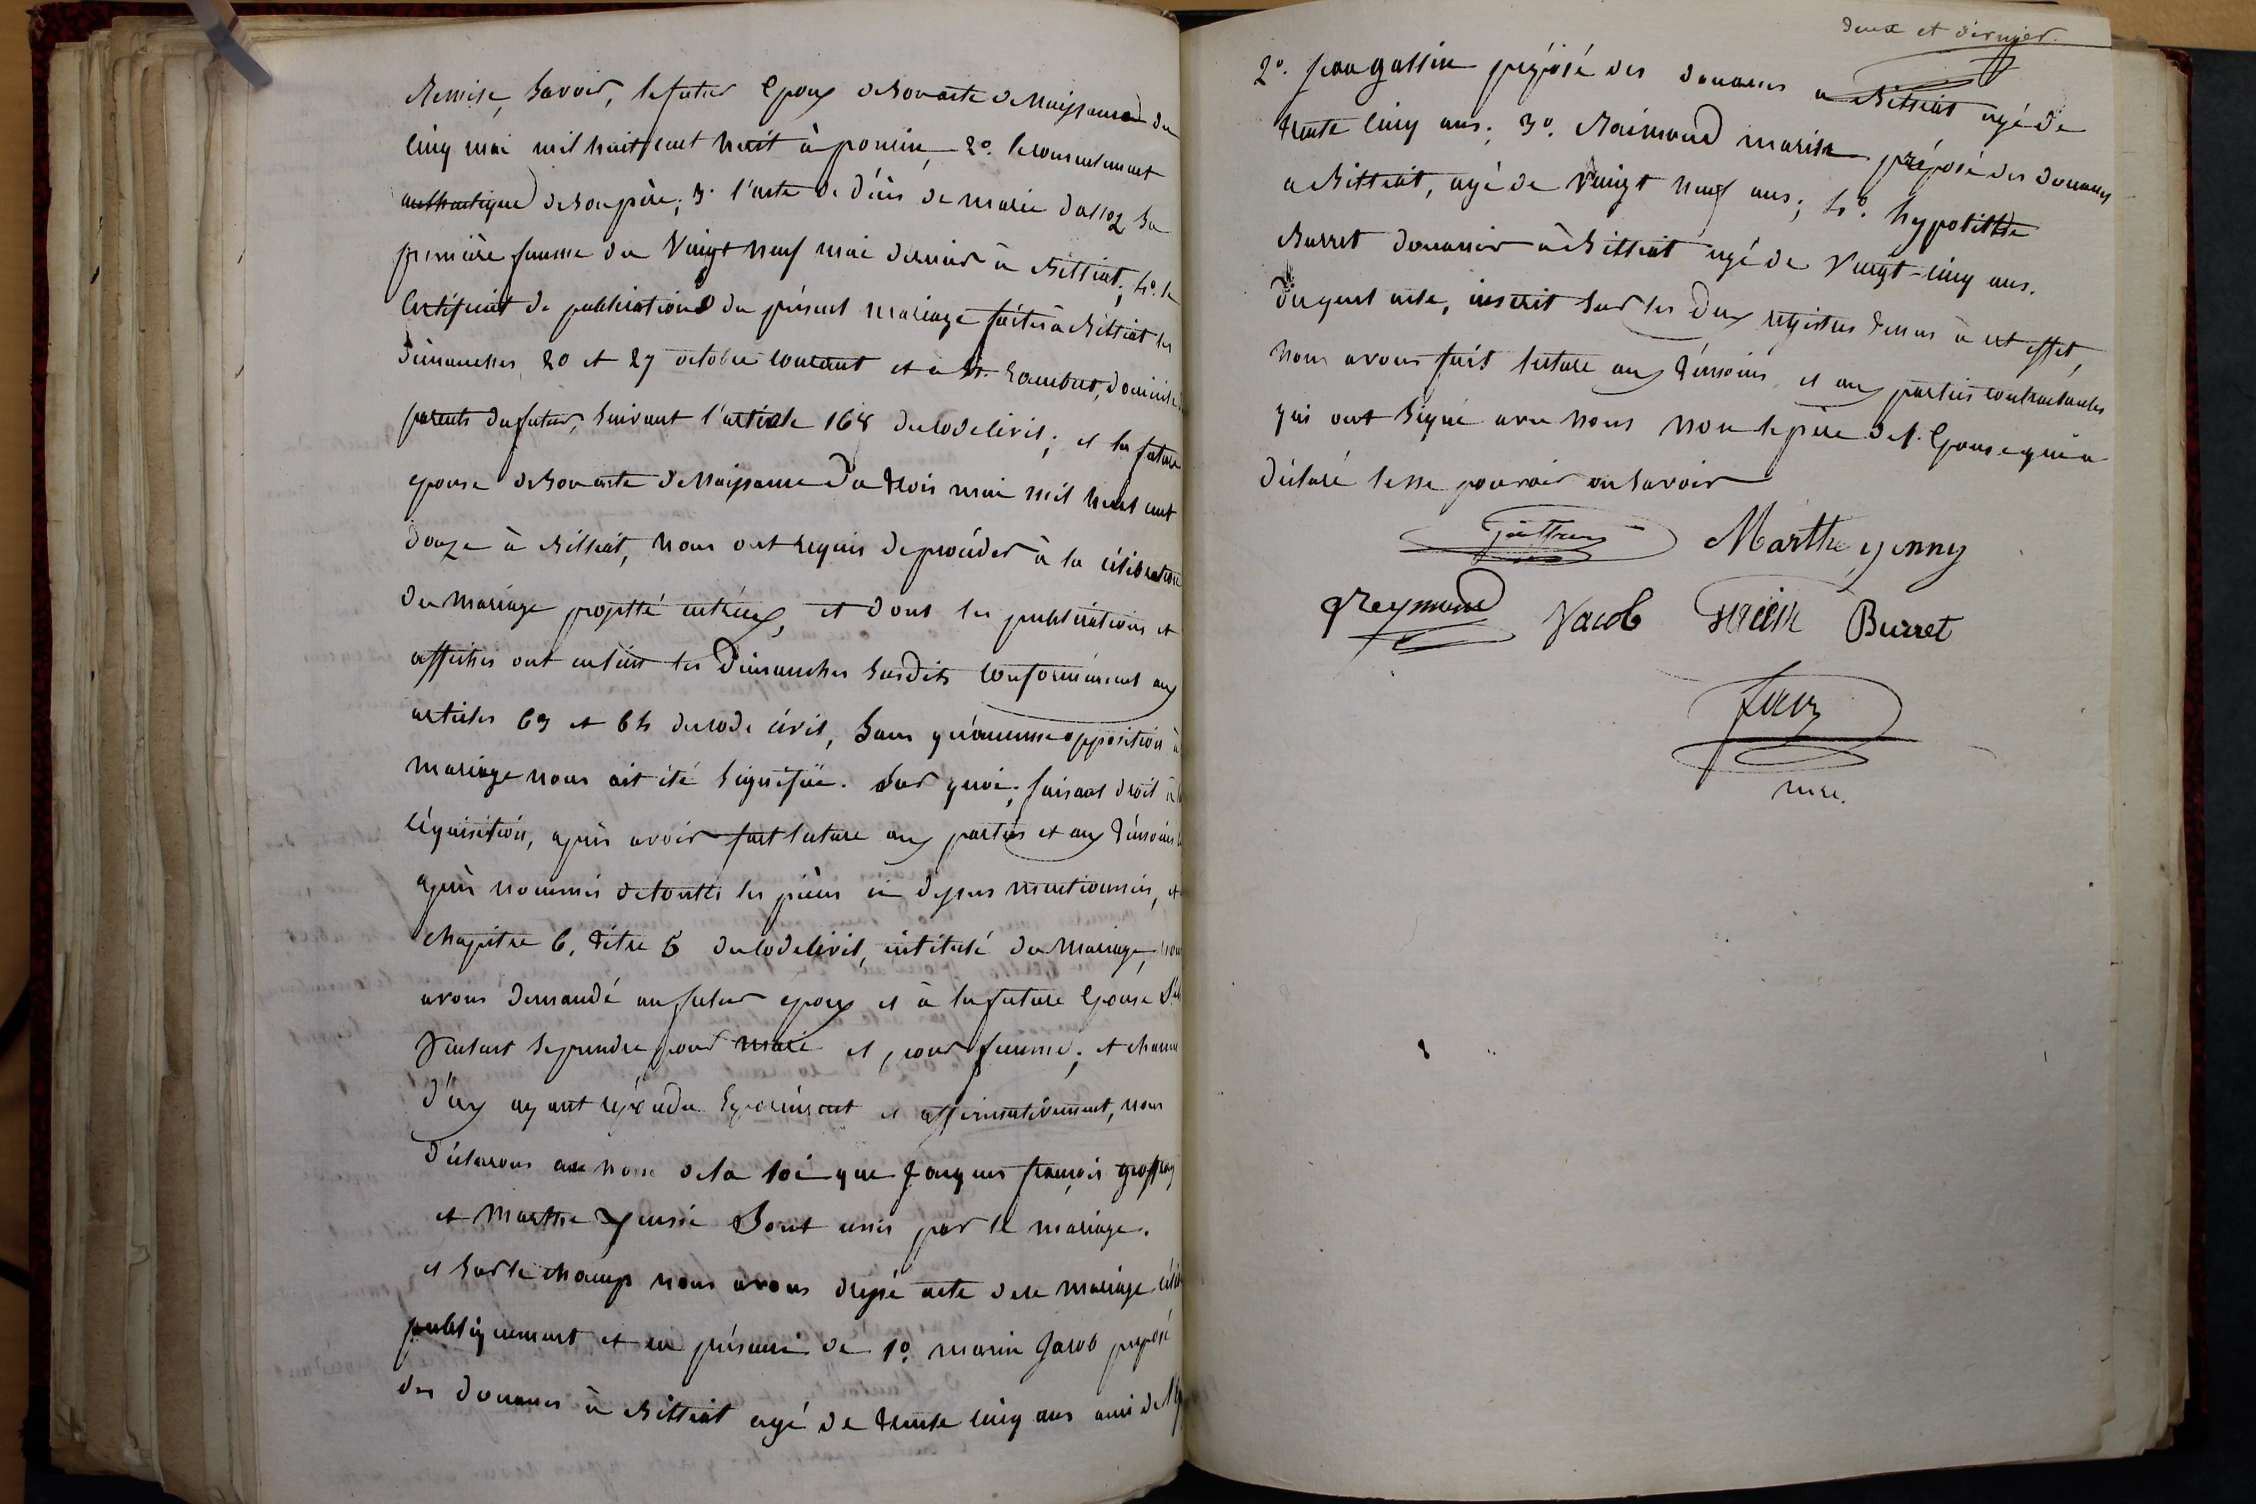 Remise, Savoir, le futur Epoux de Son acte de Naissance du
cinq mai mil huit cent huit à pomin, 2º. le consentement
authentique de Son père; 3º l'acte de décès de marie dassoz Sa
première femme du Vingt neuf mai dernier à Billiat; 4º. le
Certificat de publications du présent mariage faites à Billiat les
Dimanches 20 et 27 octobre courant et à St. Rambert, domicile
parents du futur, Suivant l'article 168 du Code Civil; et la future
epouse de Son acte de Naissance du trois mai mil huit cent
douze à Billiat, Nous ont requis de procéder à la célébration
du mariage projetté entr'eux, et dont les publications et
affiches ont eu lieu les Dimanches Susdits conformément aux
articles 63 et 64 du code civil, Sans qu'aucune opposition à
mariage nous ait été Signifiée. Sur quoi; faisant droit à
réquisition, après avoir fait lecture aux parties et aux témoins
après nommés de toutes les pièces ci dessus mentionnées, et
chapitre 6, titre 5 du Code Civil, intitulé du Mariage, nous
avons demandé au futur epoux et à la future Epouse S'ils
Veulent Se prendre pour mari et pour femme; et chacun
d'eux ayant répondu Séparément et affirmativement, nous
déclarons au nom de la loi que Jacques françois
et Marthe Sont unis par le mariage.
et Sur le champ nous avons dressé acte de ce mariage
publiquement et en présence de 1º. marin Jacob préposé
des douanes à Billiat agé de trente cinq ans ami de
deux et dernier.
2º. jean gassin préposé des douanes a Billiat agé de
trente cinq ans; 3º. Raimond marin préposé des douanes
a Billiat, agé de Vingt neuf ans; 4º. hypolitte
Burret douanier à Billiat agé de Vingt-cinq ans.
Duquel acte, inscrit Sur les deux registres tenus à cet effet,
Nous avons fait lecture aux témoins et aux parties contractantes
qui ont Signé avec Nous Non le père de l'Epouse qui a
déclaré le ne pouvoir ou Savoir
Marthe jenny
Reymond Jacob Burret
mre.